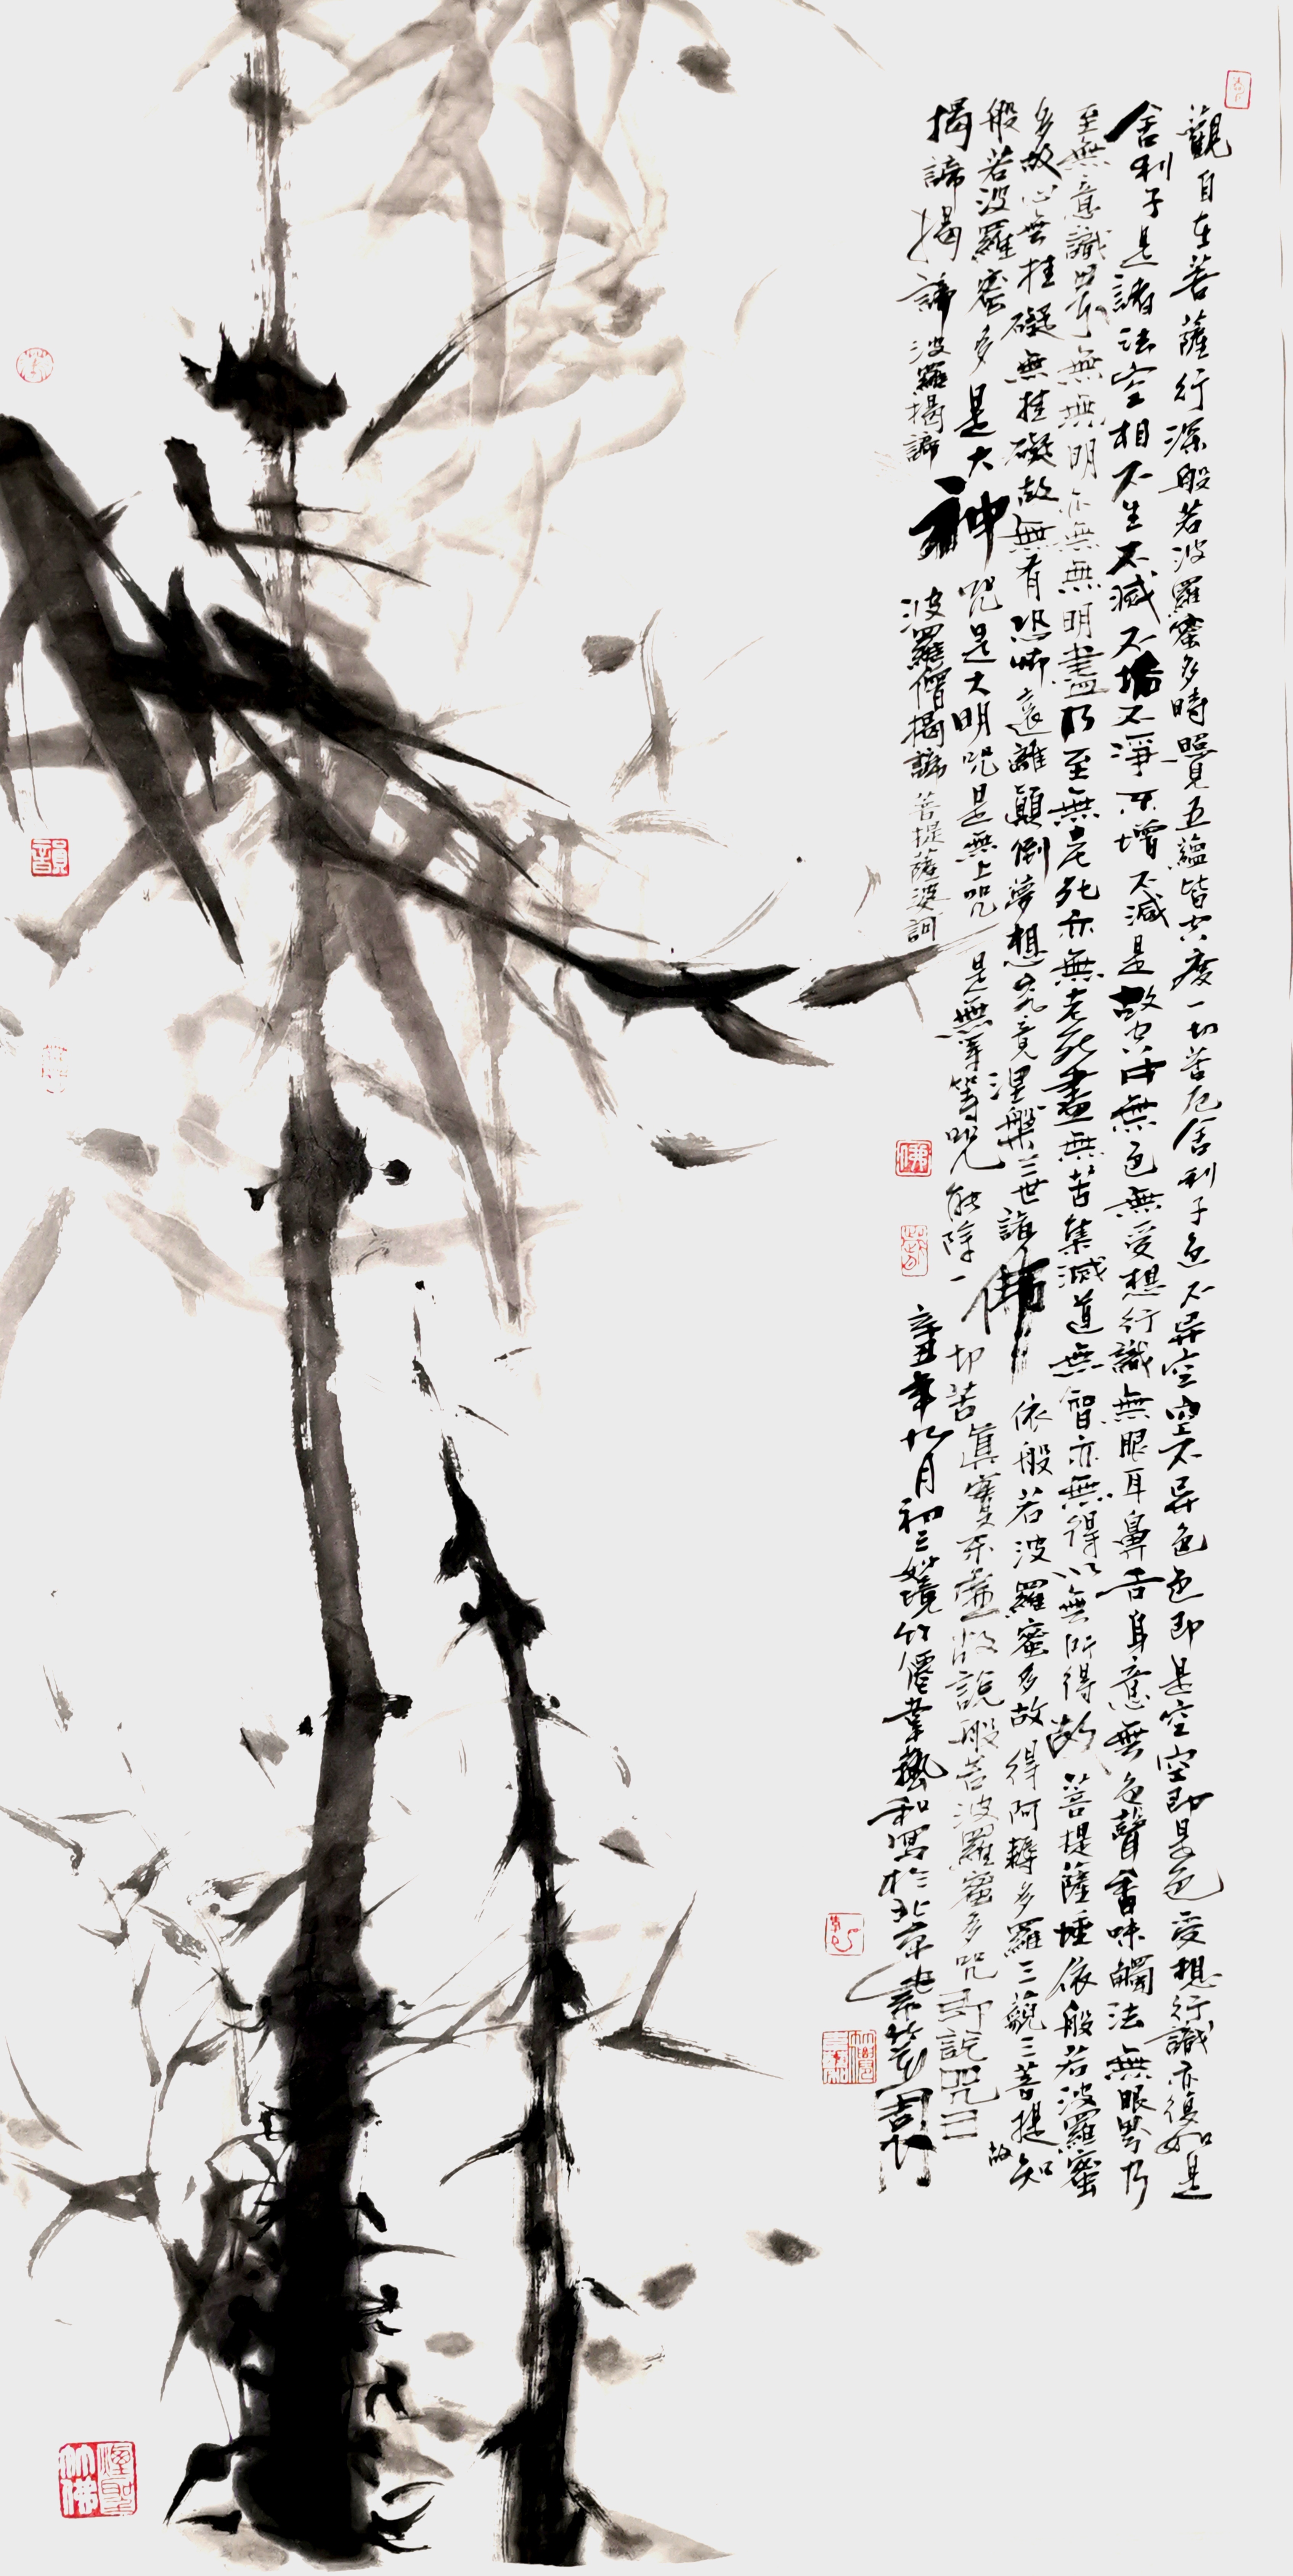 觀自在菩薩行深般若波羅蜜多時照見五蘊皆空度一切苦厄舍利子色不异空空不异色色即是空空即是色受想行識亦復如是
舍利子是諸法空相不生不滅不垢不淨不增不減是故空中無色無受想行識無眼耳鼻舌身意無色聲香味觸法無眼界乃
至無意識界無無明亦無無明盡乃至無老死亦無老死盡無苦集滅道無智亦無得以無所得故菩提薩埵依般若波羅蜜
多故心無挂礙無挂礙故無有恐怖遠離顛倒夢想究竟涅槃三世諸佛依般若波羅蜜多故得阿耨多羅三藐三菩提知
故
般若波羅蜜多是大神咒是大明咒是無上咒是無等等咒能除一切苦真實不虛故說般若波羅蜜多咒即說咒曰
揭諦揭諦波羅揭諦波羅僧揭諦菩提薩婆訶
辛丑年九月初三 竹僊韋藝和寫於北京
佛
竹佛